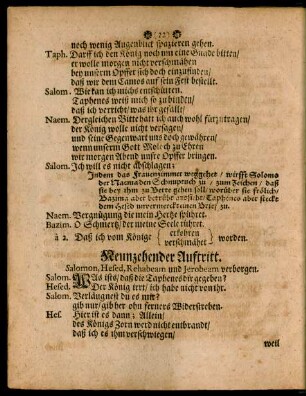 (22)
noch wenig Augenblick spazieren gehen.
Taph. Darff ich den König noch um eine Gnade bitten/
er wolle morgen nicht verschmähen
bey unserm Opffer sich doch einzufinden/
daß wir dem Camos auf sein Fest bestellt.
Salom. Wie kan ich michs entschütten.
Taphenes weiß mich so zubinden/
daß ich verricht/ was ihr gefällt/
Naem. Dergleichen Bitte hatt ich auch wohl fürzutragen/
der König wolle nicht versagen/
und seine Gegenwart uns doch gewähren/
wenn unserm Gott Moloch zu Ehren
wir morgen Abend unsre Opffer bringen.
Salom. Ich will es nicht abschlagen:
Indem das Frauenzimmer weggehet / wirfft Salomo
der Naema den Schnupftuch zu / zum Zeichen / daß
sie bey ihm zu Bette gehen soll/ worüber sie frölich/
Bazima aber betrübt aussiht/ Taphenes aber steckt
dem Hesed unvermerckt einen Brief zu.
Naem. Vergnügung die mein Hertze spühret.
Bazim. O Schmertz/ der meine Seele rühret.
à 2. Daß ich vom Könige { erkohren / verschmähet } worden.
Neunzehender Auftritt.
Salomon, Hesed, Rehabeam und Jerobeam verborgen.
Salom. WAs ists/ daß die Taphenes dir gegeben?
Hesed. Der König irrt/ ich habe nicht von ihr.
Salom. Verläugnest du es mir?
gib nur/ gib her ohn ferners Widerstreben.
Hes. Hier ist es dann; Allein/
des Königs Zorn werd nicht entbrandt/
daß ich es ihm verschwiegen/
weil